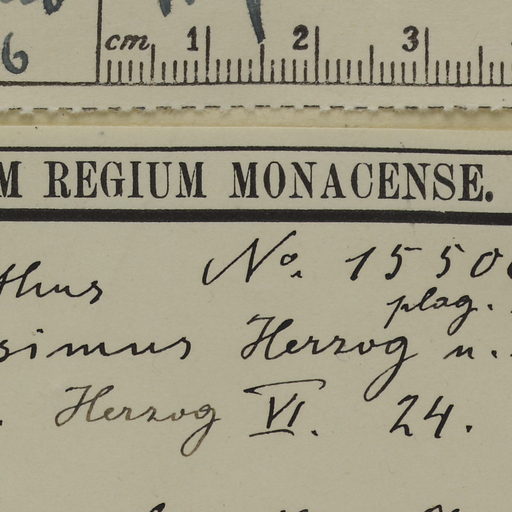 6
cm 1 2 3
M REGIUM MONACENSE.
thus No. 1550
plag.
simus Herzog u.
. Herzog VI. 24.